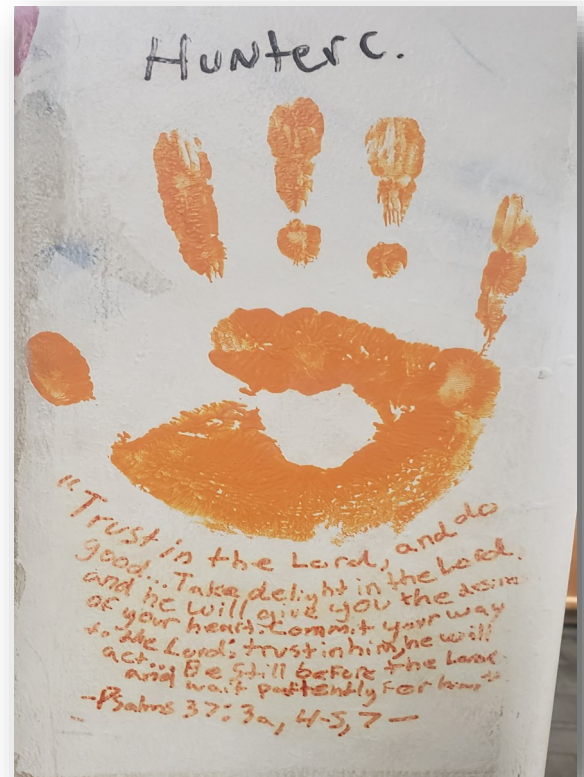 Hunter C.
"Trust in the Lord, and do
good... Take delight in the Lord.
and he will give you the desire
of your heart. Commit your way
to the Lord: trust in him, he will
act... Be Still before the Lord
and wait pattently For him"
-Psalms 37:3a, 4-5, 7-